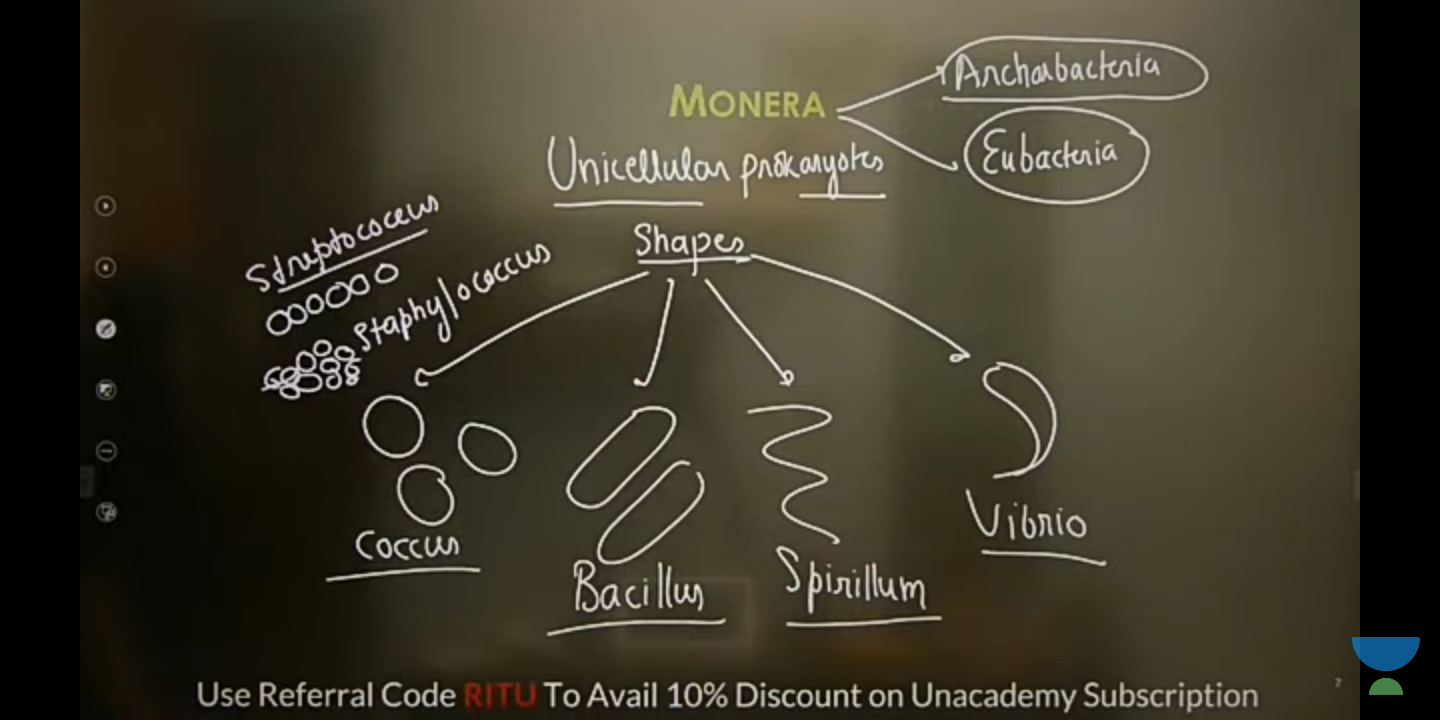 MONERA
Archaebacteria
Eubacteria
Unicellular prokaryotes
Shapes
Streptococcus
Staphylococcus
Coccus
Bacillus
Spirillum
Vibrio
Use Referral Code RITU To Avail 10% Discount on Unacademy Subscription
7